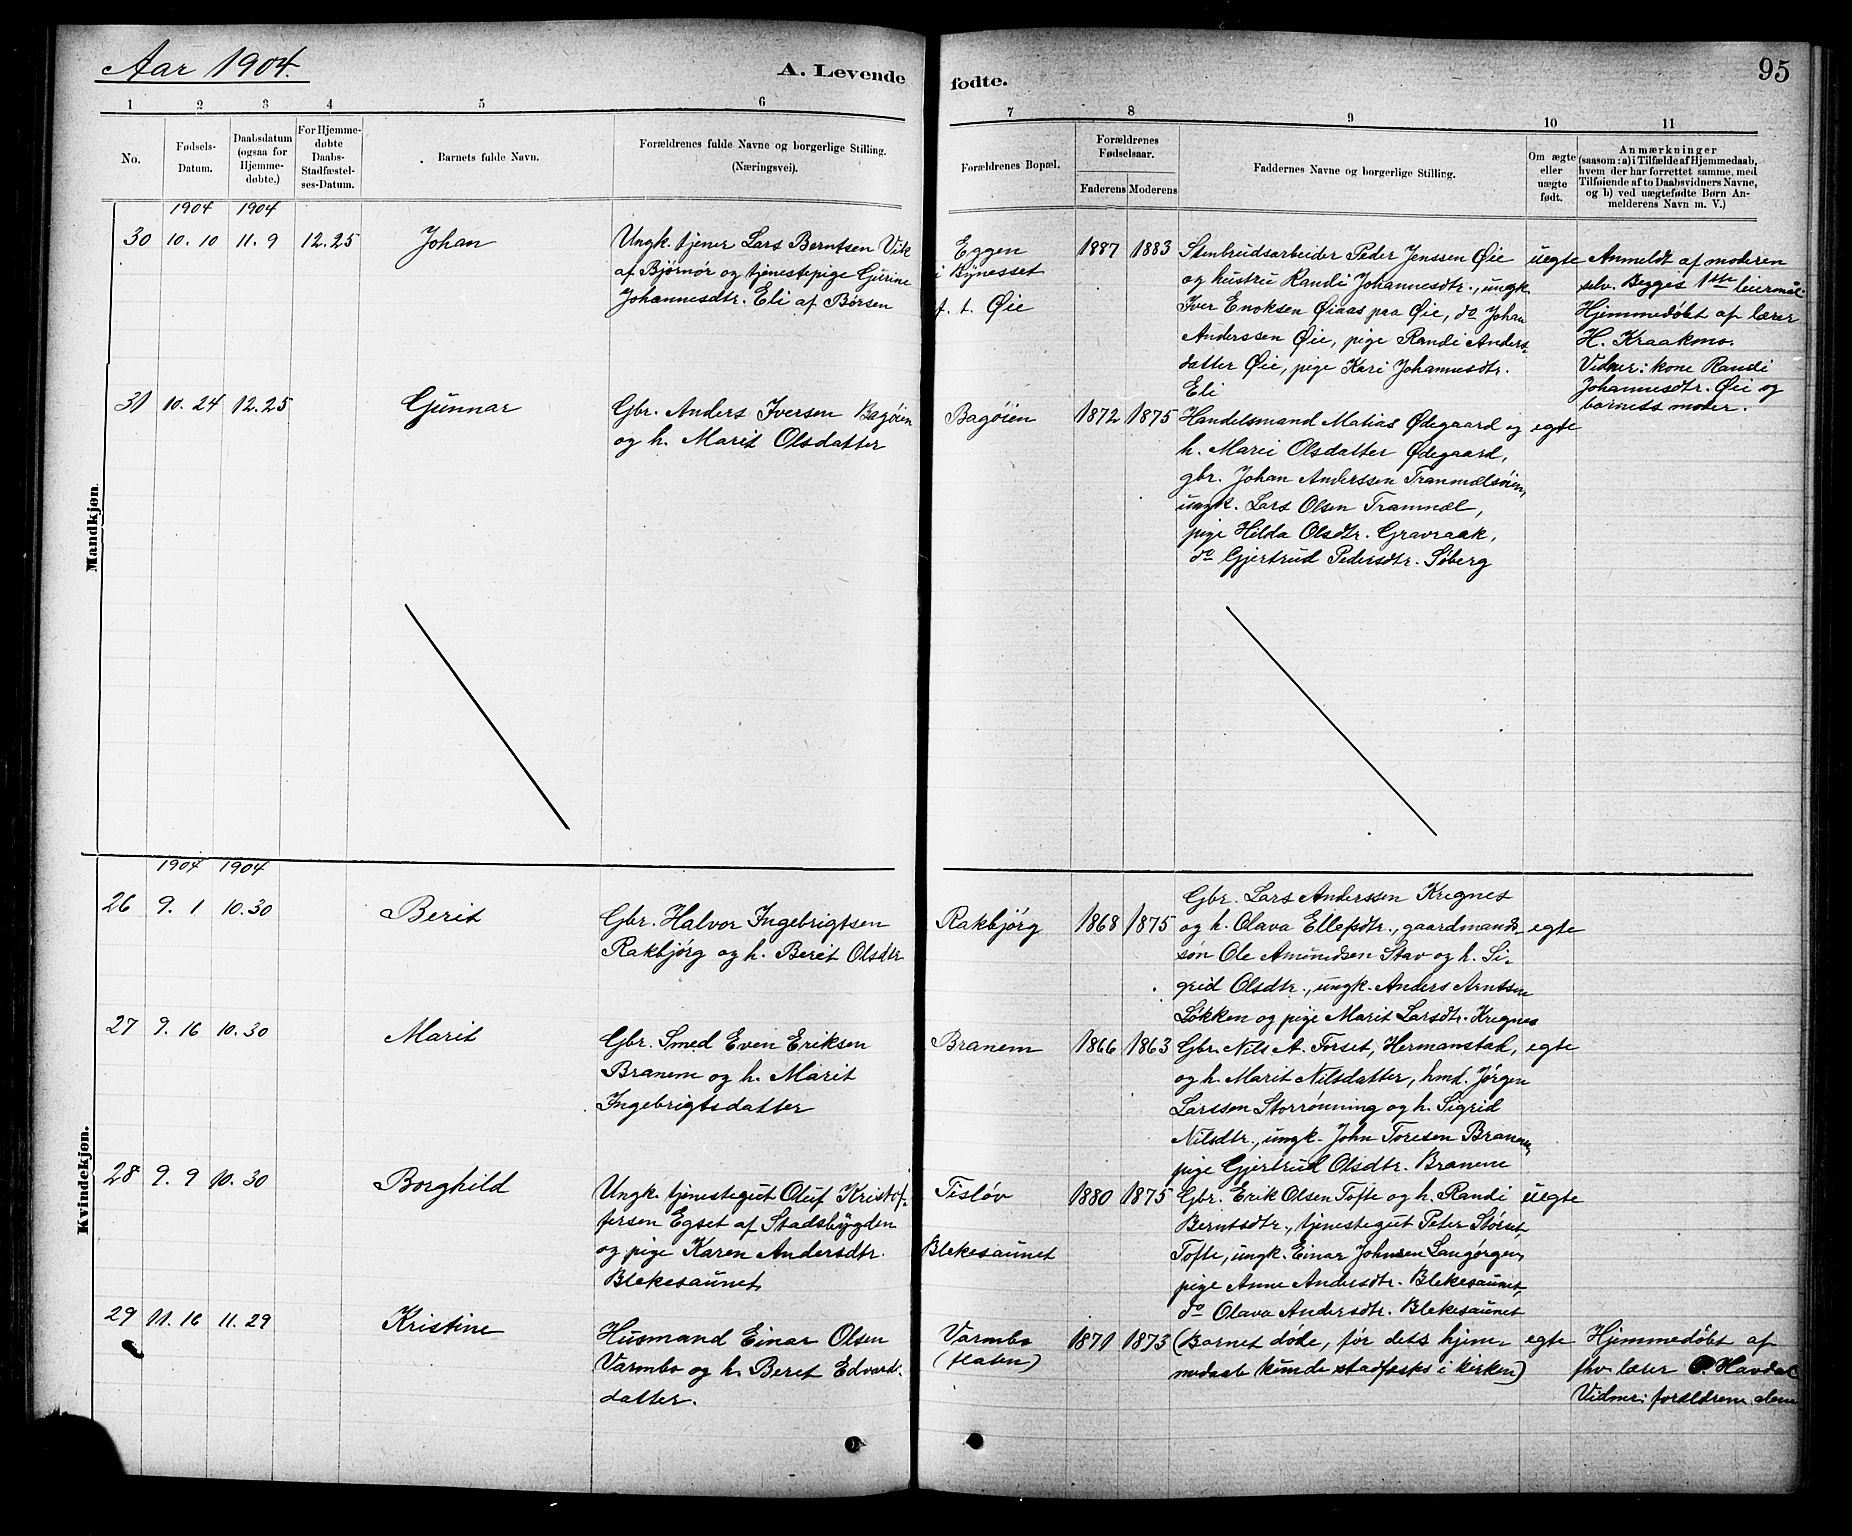 Aar 1904.
A. Levende fødte.
95
1 2 3 4 5 6 7 8 9 10 11
No.
Fødsels-
Datum.
Daabsdatum
(ogsaa for
Hjemme-
døbte.)
For Hjemme-
døbte
Daabs-
Stadfæstel-
ses-Datum.
Barnets fulde Navn.
Forældrenes fulde Navne og borgerlige Stilling.
(Næringsvei).
Forældrenes Bopæl.
Forældrenes
Fødselsaar.
Faderens Moderens
Faddernes Navne og borgerlige Stilling.
Om ægte
eller
uægte
født.
Anmærkninger
(saasom: a) i Tilfælde af Hjemmedaab,
hvem der har forrettet samme, med
Tilføiende af to Daabsvidners Navne,
og b) ved uægtefødte Børn An-
melderens Navn m. V.)
Mandkjøn.
1904 1904
30 10. 10 11. 9 12. 25 Johan
Ungk. tjener Lars Berntsen Vik
af Bjørnør og tjenestepige Gurine
Johannesdtr. Eli af Børsen
Eggen
i Bynesset
f. t. Øie
1887 1883
Stenbrudsarbeider Peder Jenssen Øie
og hustru Randi Johannesdtr., ungk.
Iver Enoksen Øiaas paa Øie, do Johan
Anderssen Øie, pige Randi Anders-
datter Øie, pige Kari Johannesdtr.
Eli
uegte
Anmeldt af moderen
selv. Begges 1ste leiermål.
Hjemmedøbt af lærer
H. Kraakmo.
Vidner: kone Randi
Johannesdtr. Øie og
barnets moder.
31 10. 24 12. 25 Gunnar
Gbr. Anders Iversen Bagøien
og h. Marit Olsdatter
Bagøien
1872 1875
Handelsmand Matias Ødegaard og
h. Marei Olsdatter Ødegaard,
gbr. Johan Anderssen Tranmælsøien,
ungk. Lars Olsen Tranmæl,
pige Hilda Olsdtr. Gravraak,
do Gjertrud Pedersdtr. Søberg
egte
Kvindekjøn.
1904 1904
26 9. 1 10. 30 Berit
Gbr. Halvor Ingebrigtsen
Rakbjørg og h. Berit Olsdtr
Rakbjørg
1868 1875
Gbr. Lars Anderssen Kregnes
og h. Olava Ellefsdtr., gaardmands-
søn Ole Amundsen Stav og h. Si-
grid Olsdtr., ungk. Anders Arntsen
Løkken og pige Marit Larsdtr. Kregnes
egte
27 9. 16 10. 30 Marit
Gbr. Smed Even Eriksen
Branem og h. Marit
Ingebrigtsdatter
Branem
1866 1863
Gbr. Nils A. Forset, Hermanstad,
og h. Marit Nilsdatter, hmd. Jørgen
Larssen Storrønning og h. Sigrid
Nilsdtr., ungk. John Toresen Branem,
pige Gjertrud Olsdtr. Branem
egte
28 9. 9 10. 30 Borghild
Ungk. tjenestegut Oluf Kristof-
fersen Egset af Stadsbygden
og pige Karen Andersdtr.
Blekesaunet
Tisløv
Blekesaunet
1880 1875
Gbr. Erik Olsen Tofte og h. Randi
Berntsdtr., tjenestegut Peter Størset,
Tofte, ungk. Einar Johnsen Langørgen,
pige Anne Andersdtr. Blekesaunet,
do Olava Andersdtr. Blekesaunet
uegte
29 11. 16 11. 29 Kristine
Husmand Einar Olsen
Varmbo og h. Beret Edvards-
datter.
Varmbo
(flaten)
1871 1873
(Barnet døde, før dets hjem-
medaab kunde stadfæsks i kirken)
egte
Hjemmedøbt af
fhv. lærer P. Havdal
Vidner: forældrene alene